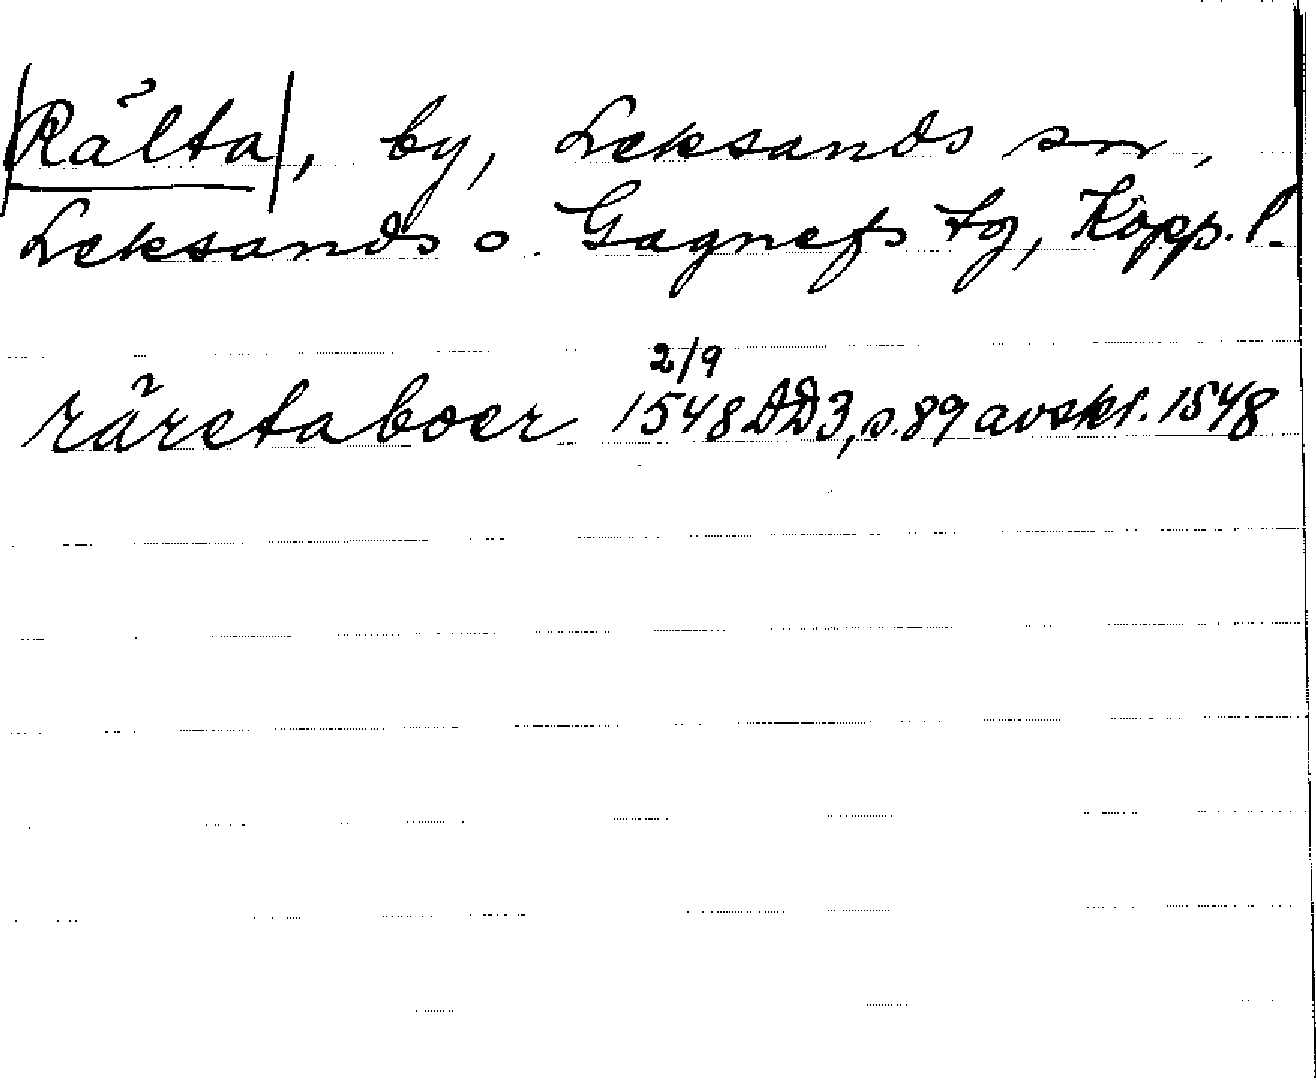 Rälta, by, Leksands sn,
Leksands o. Gagnefs tg, Kopp. l.
2/9
räretaboer 1548 DD3, s. 89 avskr. 1548